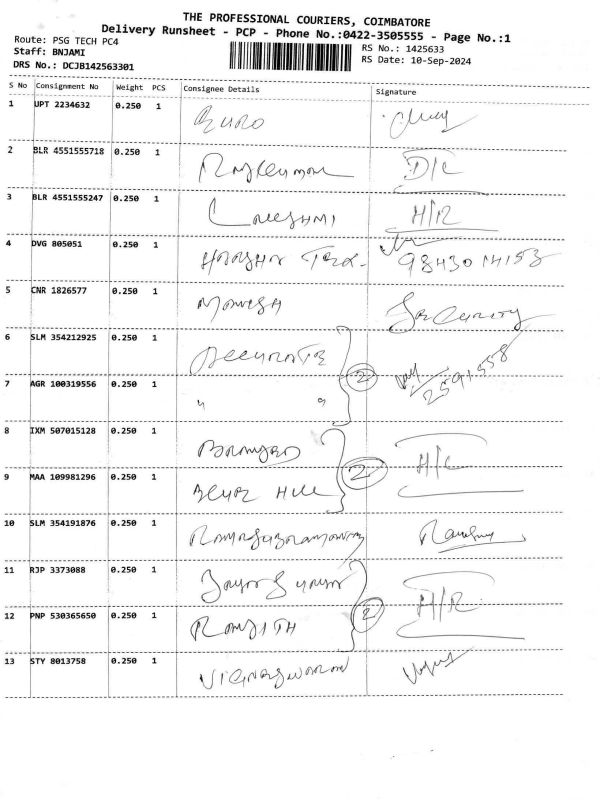 THE PROFESSIONAL COURIERS, COIMBATORE
Delivery Runsheet - PCP - Phone No.:0422-3505555 - Page No.:1
Route: PSG TECH PC4
RS No.: 1425633
Staff: BNJAMI
RS Date: 10-Sep-2024
DRS No.: DCJB142563301
S No Consignment No Weight PCS Consignee Details Signature
1 UPT 2234632 0.250 1 EURO
2 BLR 4551555718 0.250 1 D/C
3 BLR 4551555247 0.250 1 H/R
4 DVG 805051 0.250 1 9843014153
5 CNR 1826577 0.250 1 Security
6 SLM 354212925 0.250 1 ACCURATE
7 AGR 100319556 0.250 1 " " 2 2591558
8 IXM 507015128 0.250 1
9 MAA 109981296 0.250 1 BLUE HILL 2 H/C
10 SLM 354191876 0.250 1
11 RJP 3373088 0.250 1
12 PNP 530365650 0.250 1 RANJITH 2 H/R
13 STY 8013758 0.250 1 VIGNESWARAN